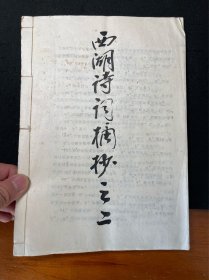 西湖诗词摘抄之二